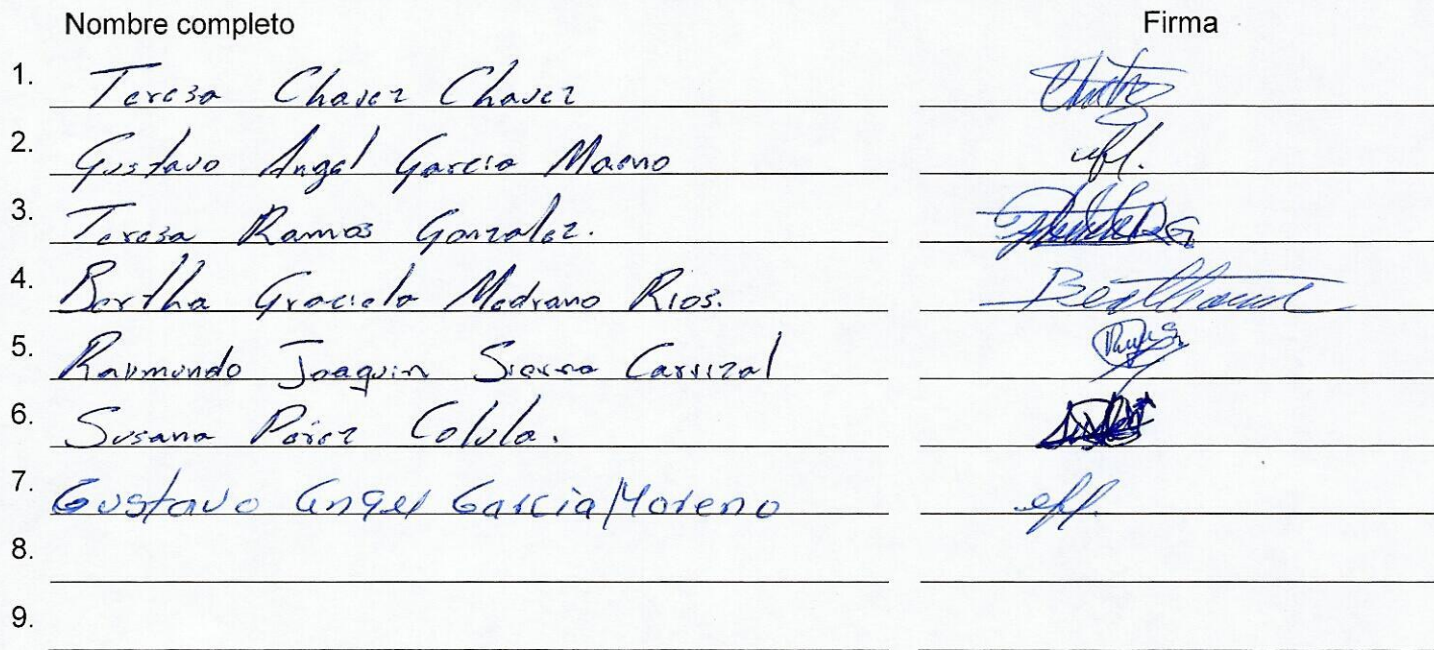 Nombre completo Firma
1. Teresa Chavez Chavez
2. Gustavo Angel Garcia Maeno
3. Teresa Ramos Gonzalez.
4. Bertha Graciela Medrano Rios.
5. Raymundo Joaquin Sierra Carrizal
6. Susana Pérez Colula.
7. Gustavo Angel Garcia Moreno
8.
9.